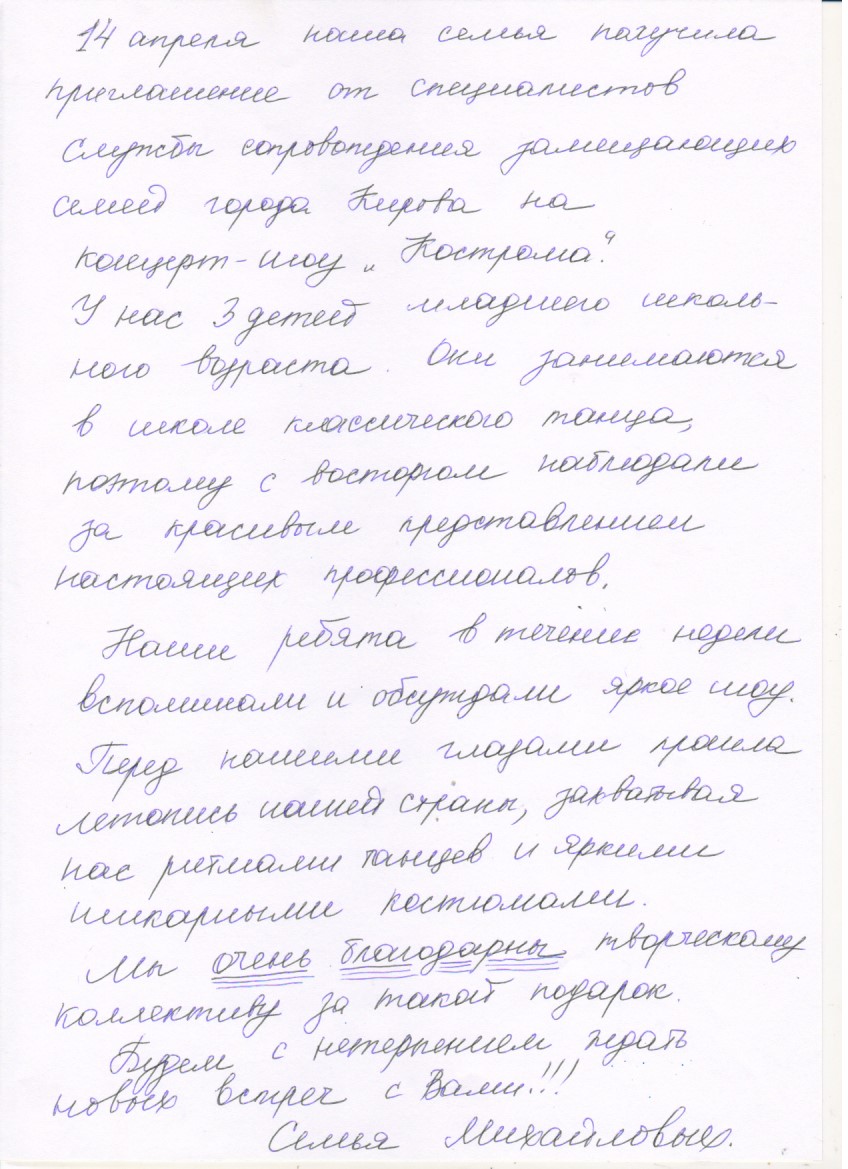 14 апреля наша семья получила
приглашение от специалистов
Службы сопровождения замещающих
семей города Кирова на
концерт-шоу „Кострома".
У нас 3 детей младшего школь-
ного возраста. Они занимаются
в школе классического танца,
поэтому с восторгом наблюдали
за красивым представлением
настоящих профессионалов.
Наши ребята в течение недели
вспоминали и обсуждали яркое шоу.
Перед нашими глазами прошла
летопись нашей страны, захватывая
нас ритмами танцев и яркими
шикарными костюмами.
Мы очень благодарны творческому
коллективу за такой подарок.
Будем с нетерпением ждать
новых встреч с Вами!!!
Семья Михайловых.